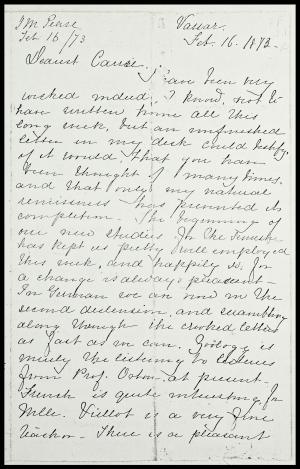 J.M. Pease
Feb. 16/73
Vassar.
Feb. 16. 1873.
Dearest Carrie.
I have been very
wicked indeed, I know, not to
have written home all this
long week, but an unfinished
letter in my desk could testify,
if it would, that you have
been thought of many times.
and that only my natural
remissness has prevented its
completion. The beginning of
our new studies for the Semester
has kept us pretty well employed
this week, and happily so, for
a change is always pleasant.
In German we are now in the
second declension, and scrambling
along through the crooked letters
as fast as we can. Zoology is
merely the listening to lectures
from Prof. Orton, at present.
French is quite interesting, for
Mlle. Viellot is a very fine
teacher. There is a pleasant